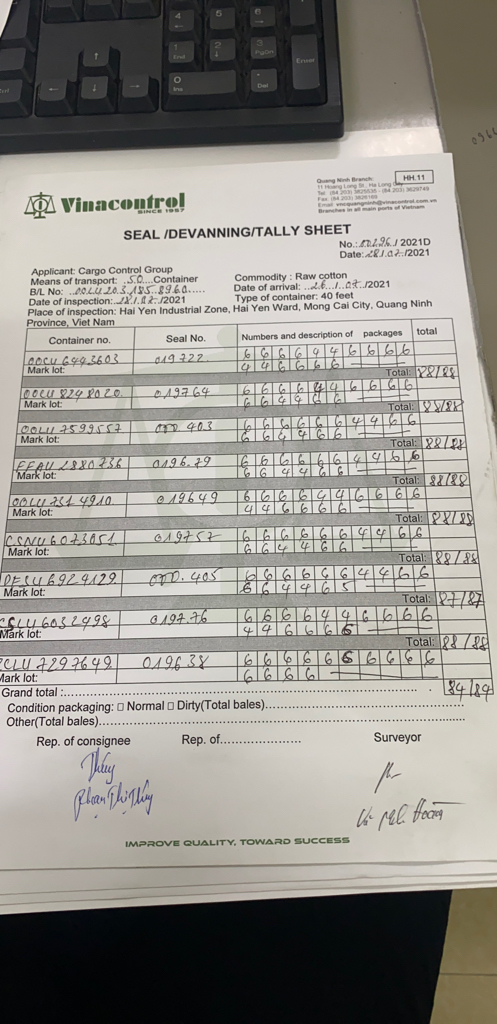 4 5 6
1 End 2 3 PgDn Enter
0 Ins . Del
Quang Ninh Branch:
HH.11
11 Hoang Long St., Ha Long City
Fax: (84 203) 3826169
Email: vncquangninh@vinacontrol.com.vn
Branches in all main ports of Vietnam
Vinacontrol
SINCE 1957
SEAL /DEVANNING/TALLY SHEET
No.: 00296 / 2021D
Date: 28/02/2021
Applicant: Cargo Control Group
Means of transport: 50 Container
Commodity : Raw cotton
B/L No: OOLU 203 185 8960
Date of arrival: 26/02/2021
Date of inspection: 28/02/2021
Type of container: 40 feet
Place of inspection: Hai Yen Industrial Zone, Hai Yen Ward, Mong Cai City, Quang Ninh
Province, Viet Nam
Container no. Seal No. Numbers and description of packages total
OOCU 6493603 019722 6 6 6 6 4 4 6 6 6 6
Mark lot: 4 4 6 6 6 6
Total: 88/88
OOCU 8248020 019764 6 6 6 6 4 4 6 6 6 6
Mark lot: 6 6 4 4 6 6
Total: 88/88
OOLU 7599557 403 6 6 6 6 6 6 4 4 6 6
Mark lot: 6 6 4 4 6 6
Total: 88/88
FFAU 2880736 019679 6 6 6 6 6 6 4 4 6 6
Mark lot: 6 6 4 4 6 6
Total: 88/88
OOLU 7314910 019649 6 6 6 6 4 4 6 6 6 6
Mark lot: 4 4 6 6 6 6
Total: 88/88
CSNU 6073051 019757 6 6 6 6 6 6 4 4 6 6
Mark lot: 6 6 4 4 6 6
Total: 88/88
DFSU 6929129 405 6 6 6 6 6 6 4 4 6 6
Mark lot: 6 6 4 4 6 5
Total: 87/87
CSLU 6032498 019776 6 6 6 6 4 4 6 6 6 6
Mark lot: 4 4 6 6 6 6
Total: 88/88
CLU 7297649 019638 6 6 6 6 6 6 6 6 6 6
Mark lot: 6 6 6 6
84/84
Grand total :
Condition packaging: □ Normal □ Dirty(Total bales)
Other(Total bales)
Rep. of consignee Rep. of Surveyor
Thúy
Phan Thị Thúy
IMPROVE QUALITY, TOWARD SUCCESS